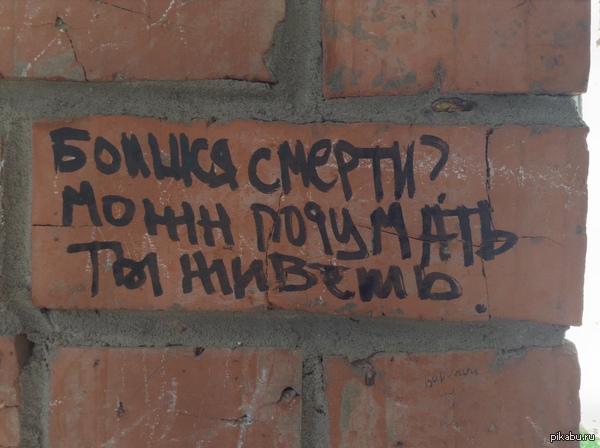 БОИШСЯ СМЕРТИ?
МОЖН ПОДУМАТЬ
ТЫ ЖИВЕШЬ.
pikabu.ru